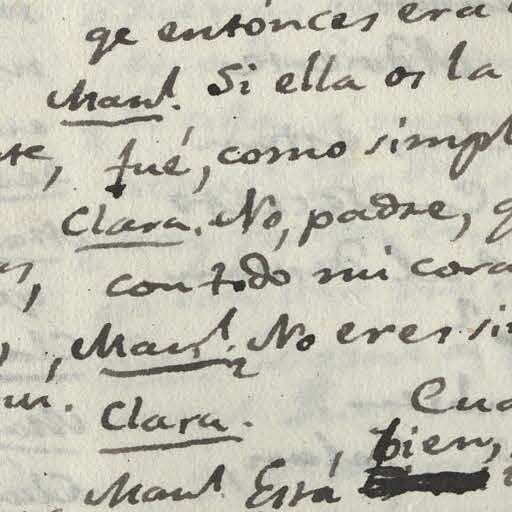 qe entónces era
Manl. Si ella os la
te, fué, como simpl
Clara. No, padre, q
con todo mi cora
Manl. No eres si
mí.
Clara. Cua
bien,
Manl. Está